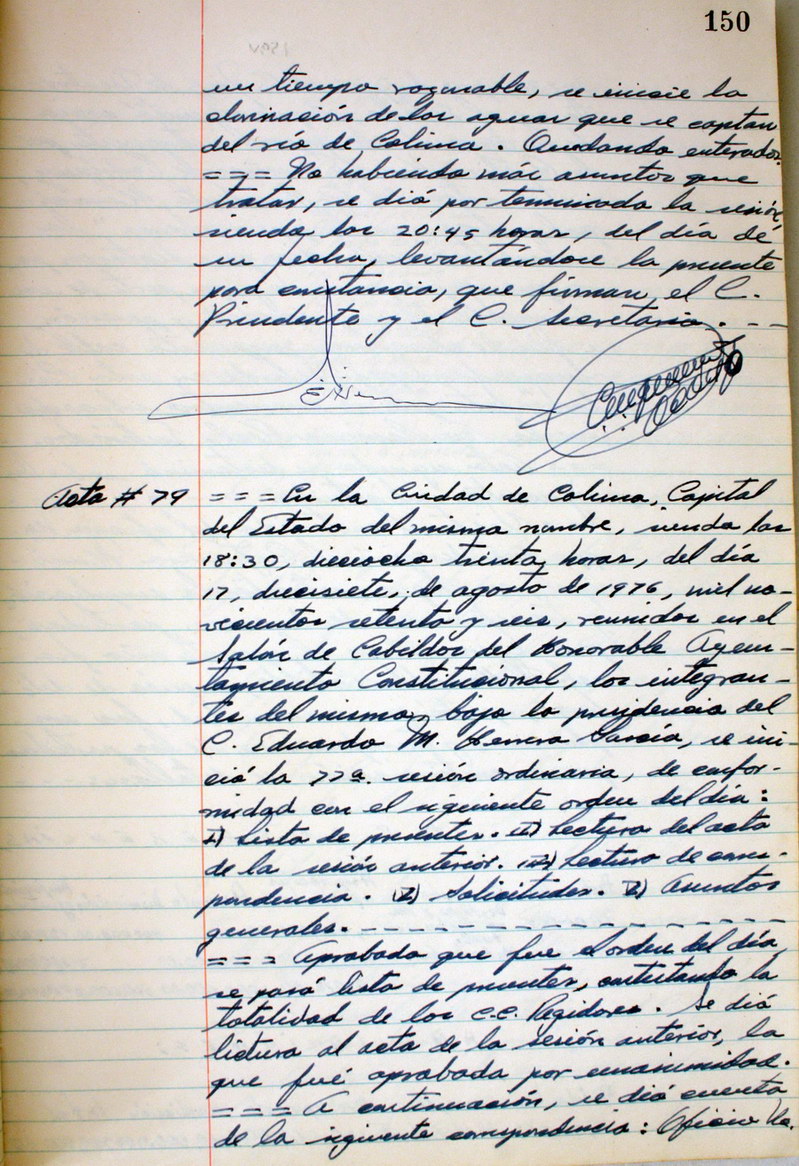 150
un tiempo razonable, se inicie la
clorinación de las aguas que se captan
del río de Colima. Quedando enterados.
=== No habiendo más asuntos que
tratar, se dió por terminada la sesión,
siendo las 20:45 horas, del día de
su fecha, levantándose la presente
para constancia, que firman el C.
Presidente y el C. Secretario. - -
Acta # 79 === En la Ciudad de Colima, Capital
del Estado del mismo nombre, siendo las
18:30, dieciocho treinta horas, del día
17, diecisiete, de agosto de 1976, mil no-
vecientos setenta y seis, reunidos en el
Salón de Cabildos del Honorable Ayun-
tamiento Constitucional, los integran-
tes del mismo, bajo la presidencia del
C. Eduardo M. Herrera García, se ini-
ció la 77a. sesión ordinaria, de confor-
midad con el siguiente orden del día:
I) Lista de presentes. II) Lectura del acta
de la sesión anterior. III) Lectura de corres-
pondencia. IV) Solicitudes. V) Asuntos
generales. - - - - - - - - - - - - - - -
=== Aprobada que fue el orden del día,
se pasó lista de presentes, contestando la
totalidad de los C.C. Regidores. Se dió
lectura al acta de la sesión anterior, la
que fué aprobada por unanimidad.
=== A continuación, se dió cuenta
de la siguiente correspondencia: Oficio No.